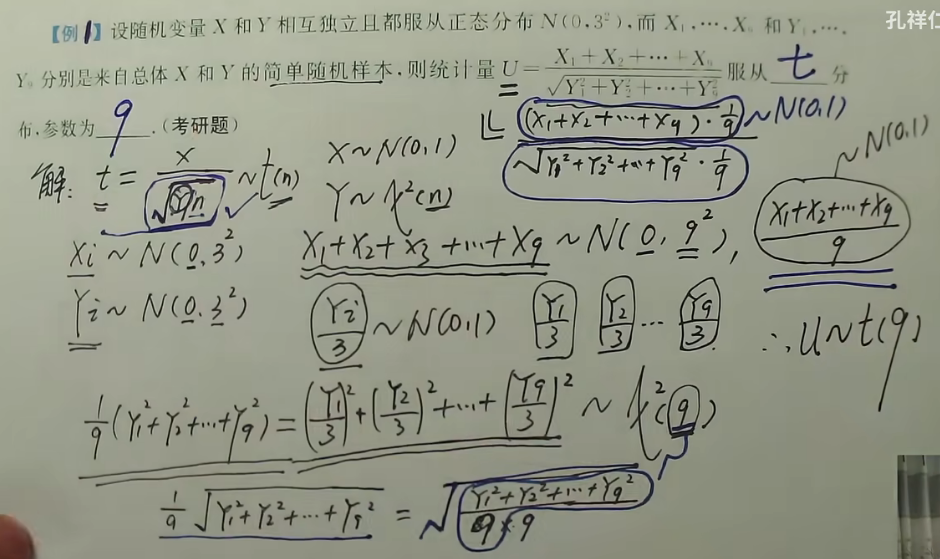 孔祥仁
【例1】设随机变量 X 和 Y 相互独立且都服从正态分布 N(0,3²),而 X₁,…,X₉ 和 Y₁,…,
Y₉ 分别是来自总体 X 和 Y 的简单随机样本,则统计量 U = (X₁+X₂+…+X₉)/√(Y₁²+Y₂²+…+Y₉²) 服从 t 分
布,参数为 9 .(考研题)
U = ((X₁+X₂+…+X₉)·1/9)/(√(Y₁²+Y₂²+…+Y₉²)·1/9) ~N(0,1)
解: t = X/√(Y/n) ~ t(n)
X~N(0,1)
Y~χ²(n)
(X₁+X₂+…+X₉)/9 ~N(0,1)
Xi ~ N(0,3²)
X₁+X₂+X₃+…+X₉ ~ N(0, 9²),
Yi ~ N(0,3²)
Yi/3 ~ N(0,1)
Y₁/3 Y₂/3 … Y₉/3
∴U~t(9)
1/9(Y₁²+Y₂²+…+Y₉²) = (Y₁/3)²+(Y₂/3)²+…+(Y₉/3)² ~ χ²(9)
1/9 √(Y₁²+Y₂²+…+Y₉²) = √((Y₁²+Y₂²+…+Y₉²)/(9×9))